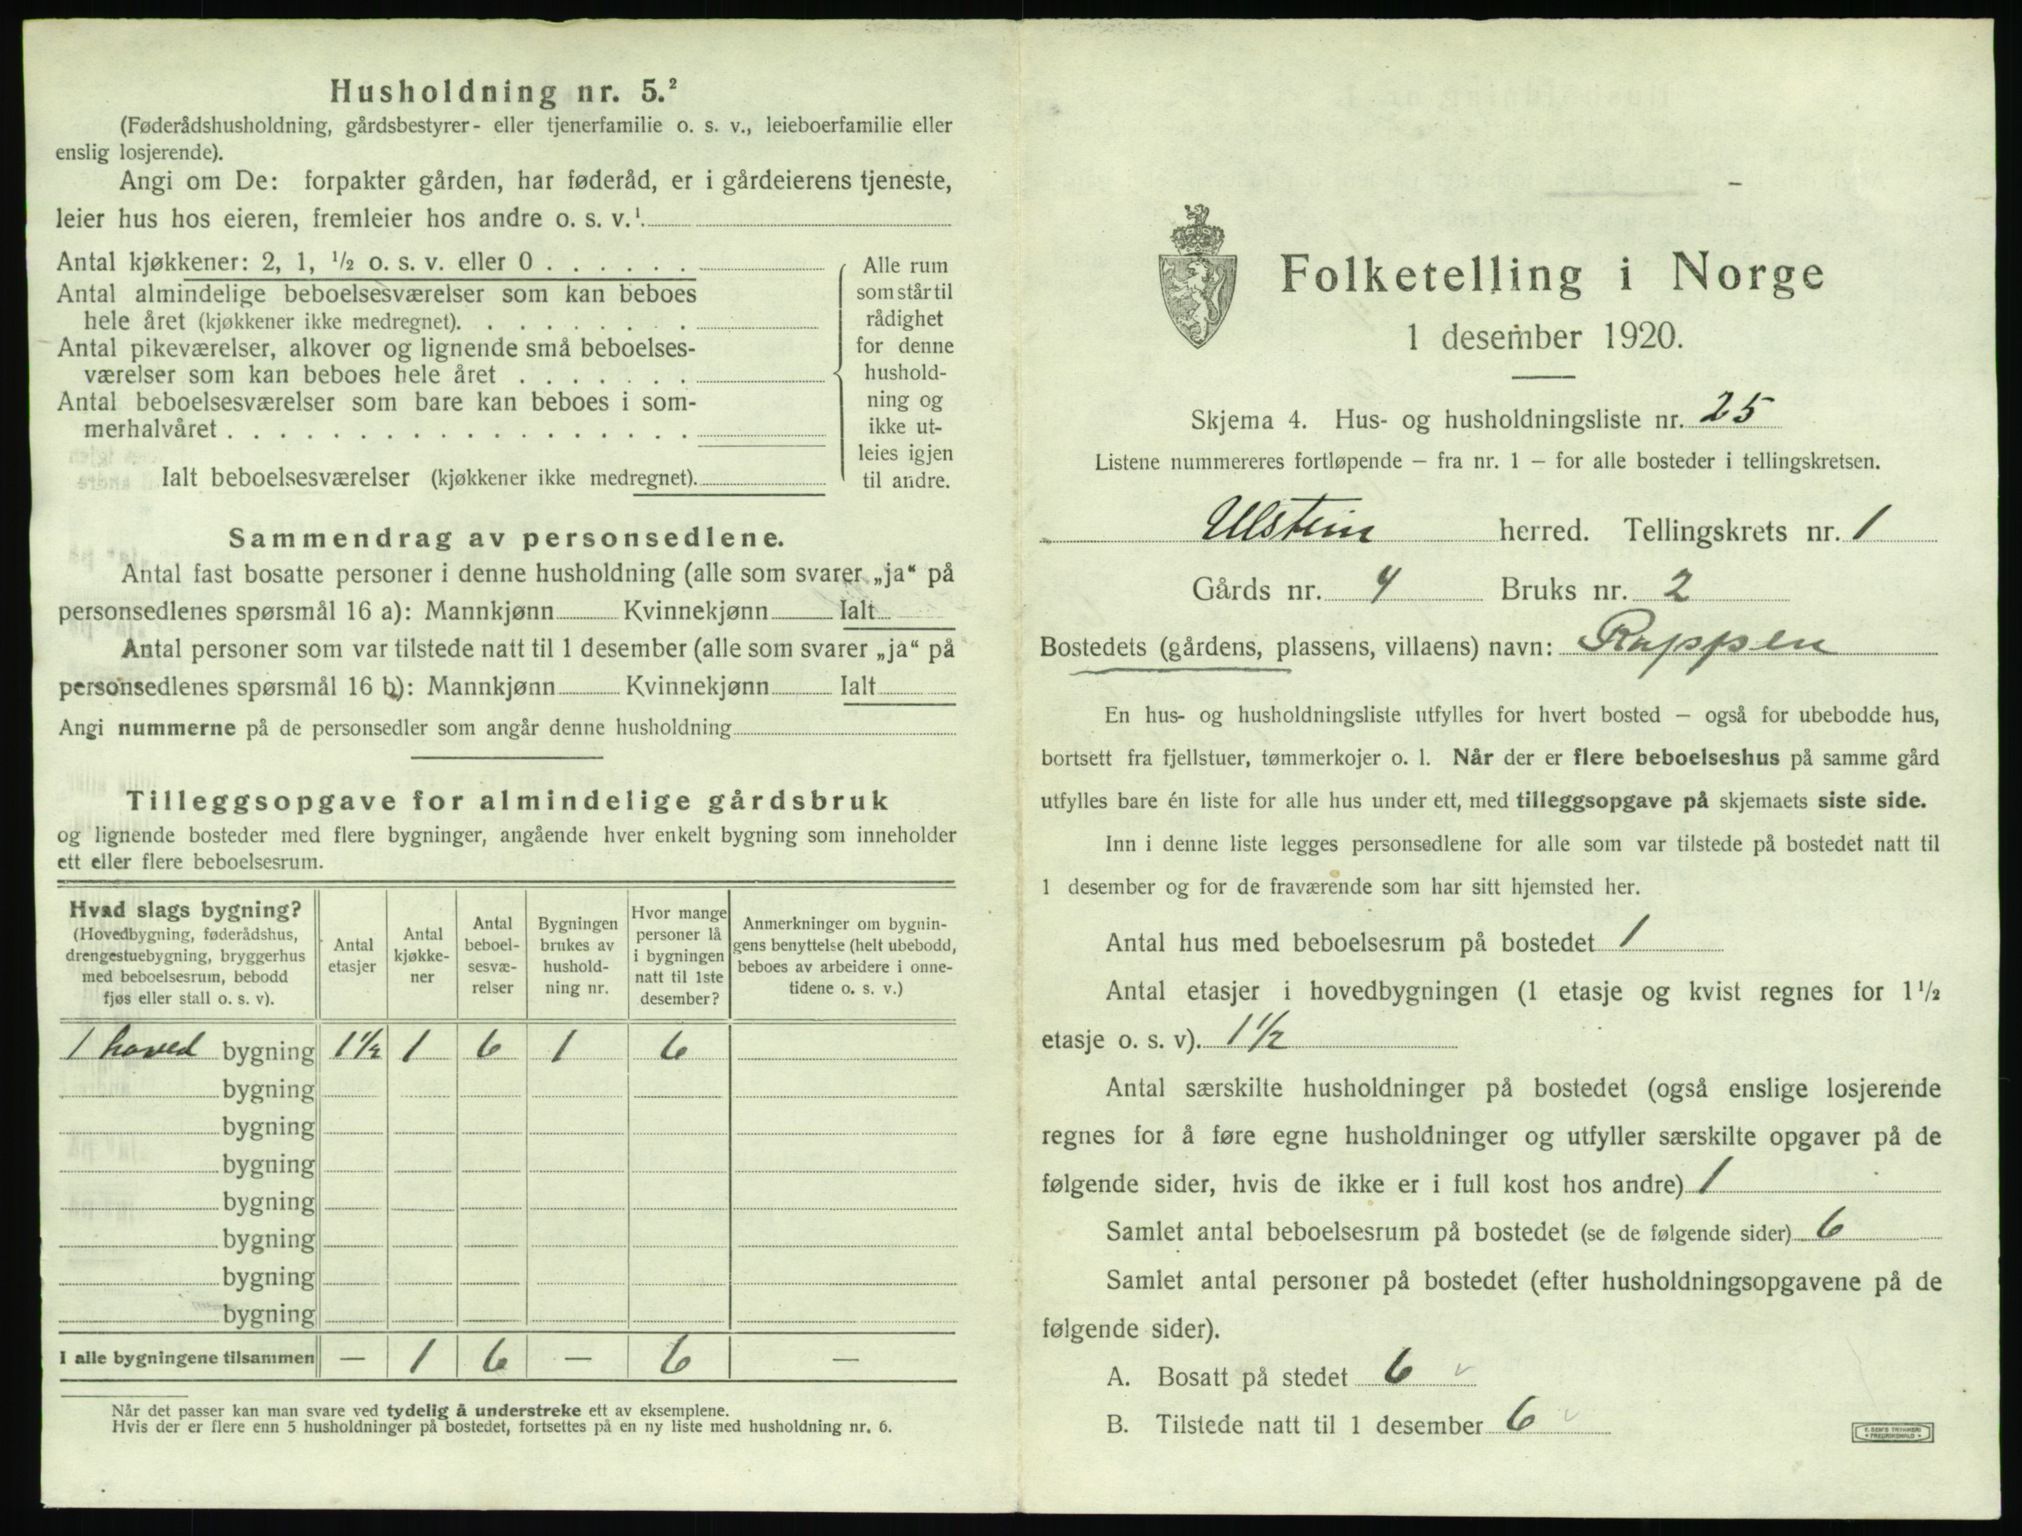 Husholdning nr. 5.²
(Føderådshusholdning, gårdsbestyrer- eller tjenerfamilie o. s. v., leieboerfamilie eller
enslig losjerende).
Angi om De: forpakter gården, har føderåd, er i gårdeierens tjeneste,
leier hus hos eieren, fremleier hos andre o. s. v.¹
Antal kjøkkener: 2, 1, ½ o. s. v. eller 0 . . . . . .
Antal almindelige beboelsesværelser som kan beboes
hele året (kjøkkener ikke medregnet). . . . . . . . .
Antal pikeværelser, alkover og lignende små beboelses-
værelser som kan beboes hele året . . . . . . .
Antal beboelsesværelser som bare kan beboes i som-
merhalvåret . . . . . . . . . . . . . . . . . .
Ialt beboelsesværelser (kjøkkener ikke medregnet).
Alle rum
som står til
rådighet
for denne
hushold-
ning og
ikke ut-
leies igjen
til andre.
Sammendrag av personsedlene.
Antal fast bosatte personer i denne husholdning (alle som svarer „ja“ på
personsedlenes spørsmål 16 a): Mannkjønn Kvinnekjønn Ialt
Antal personer som var tilstede natt til 1 desember (alle som svarer „ja“ på
personsedlenes spørsmål 16 b): Mannkjønn Kvinnekjønn Ialt
Angi nummerne på de personsedler som angår denne husholdning
Tilleggsopgave for almindelige gårdsbruk
og lignende bosteder med flere bygninger, angående hver enkelt bygning som inneholder
ett eller flere beboelsesrum.
Hvad slags bygning?
(Hovedbygning, føderådshus,
drengestuebygning, bryggerhus
med beboelsesrum, bebodd
fjøs eller stall o. s. v).
Antal
etasjer
Antal
kjøkke-
ner
Antal
beboel-
sesvæ-
relser
Bygningen
brukes av
hushold-
ning nr.
Hvor mange
personer lå
i bygningen
natt til 1ste
desember?
Anmerkninger om bygnin-
gens benyttelse (helt ubebodd,
beboes av arbeidere i onne-
tidene o. s. v.)
1 hoved bygning 1½ 1 6 1 6
bygning
bygning
bygning
bygning
bygning
bygning
bygning
I alle bygningene tilsammen — 1 6 — 6 —
Når det passer kan man svare ved tydelig å understreke ett av eksemplene.
Hvis der er flere enn 5 husholdninger på bostedet, fortsettes på en ny liste med husholdning nr. 6.
Folketelling i Norge
1 desember 1920.
Skjema 4. Hus- og husholdningsliste nr. 25
Listene nummereres fortløpende – fra nr. 1 – for alle bosteder i tellingskretsen.
Ulstein herred. Tellingskrets nr. 1
Gårds nr. 4 Bruks nr. 2
Bostedets (gårdens, plassens, villaens) navn: Rappen
En hus- og husholdningsliste utfylles for hvert bosted – også for ubebodde hus,
bortsett fra fjellstuer, tømmerkojer o. l. Når der er flere beboelseshus på samme gård
utfylles bare én liste for alle hus under ett, med tilleggsopgave på skjemaets siste side.
Inn i denne liste legges personsedlene for alle som var tilstede på bostedet natt til
1 desember og for de fraværende som har sitt hjemsted her.
Antal hus med beboelsesrum på bostedet 1
Antal etasjer i hovedbygningen (1 etasje og kvist regnes for 1½
etasje o. s. v). 1½
Antal særskilte husholdninger på bostedet (også enslige losjerende
regnes for å føre egne husholdninger og utfyller særskilte opgaver på de
følgende sider, hvis de ikke er i full kost hos andre) 1
Samlet antal beboelsesrum på bostedet (se de følgende sider) 6
Samlet antal personer på bostedet (efter husholdningsopgavene på de
følgende sider).
A. Bosatt på stedet 6 v
B. Tilstede natt til 1 desember 6 v